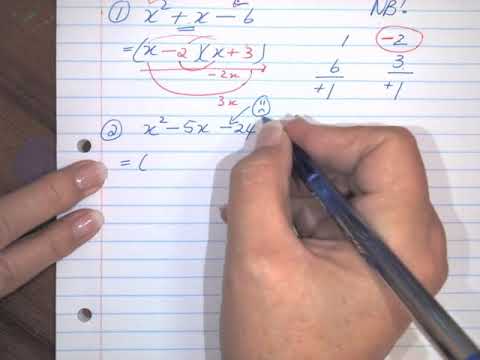 ① x² + x - 6 NB!
= (x - 2)(x + 3) 1 -2
-2x 6 3
3x +1 +1
② x² - 5x - 24
= (